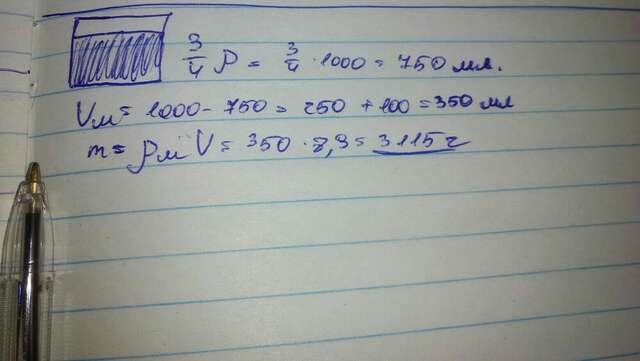 3/4 р = 3/4 · 1000 = 750 мл.
Vм = 1000 - 750 = 250 + 100 = 350 мл
m = ρм V = 350 · 8,9 = 3115 г